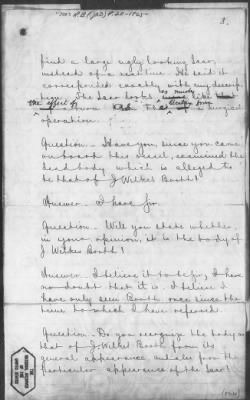 3.
find a large ugly looking scar,
instead of a neat line. He said it
corresponded exactly with my descrip-
tion. The scar looks as much like
the effect of a burn as that of a surgical
operation.
Question - Have you, since you came
on board this vessel, examined the
dead body which is alleged to
be that of J. Wilkes Booth?
Answer - I have sir.
Question - Will you state whether,
in your opinion, it is the body of
J Wilkes Booth?
Answer - I believe it to be, sir, I have
no doubt that it is. I believe I
have only seen Booth once since the
time to which I have referred.
Question - Do you recognize the body as
that of J. Wilkes Booth from its
general appearance and also from the
particular appearance of the scar?